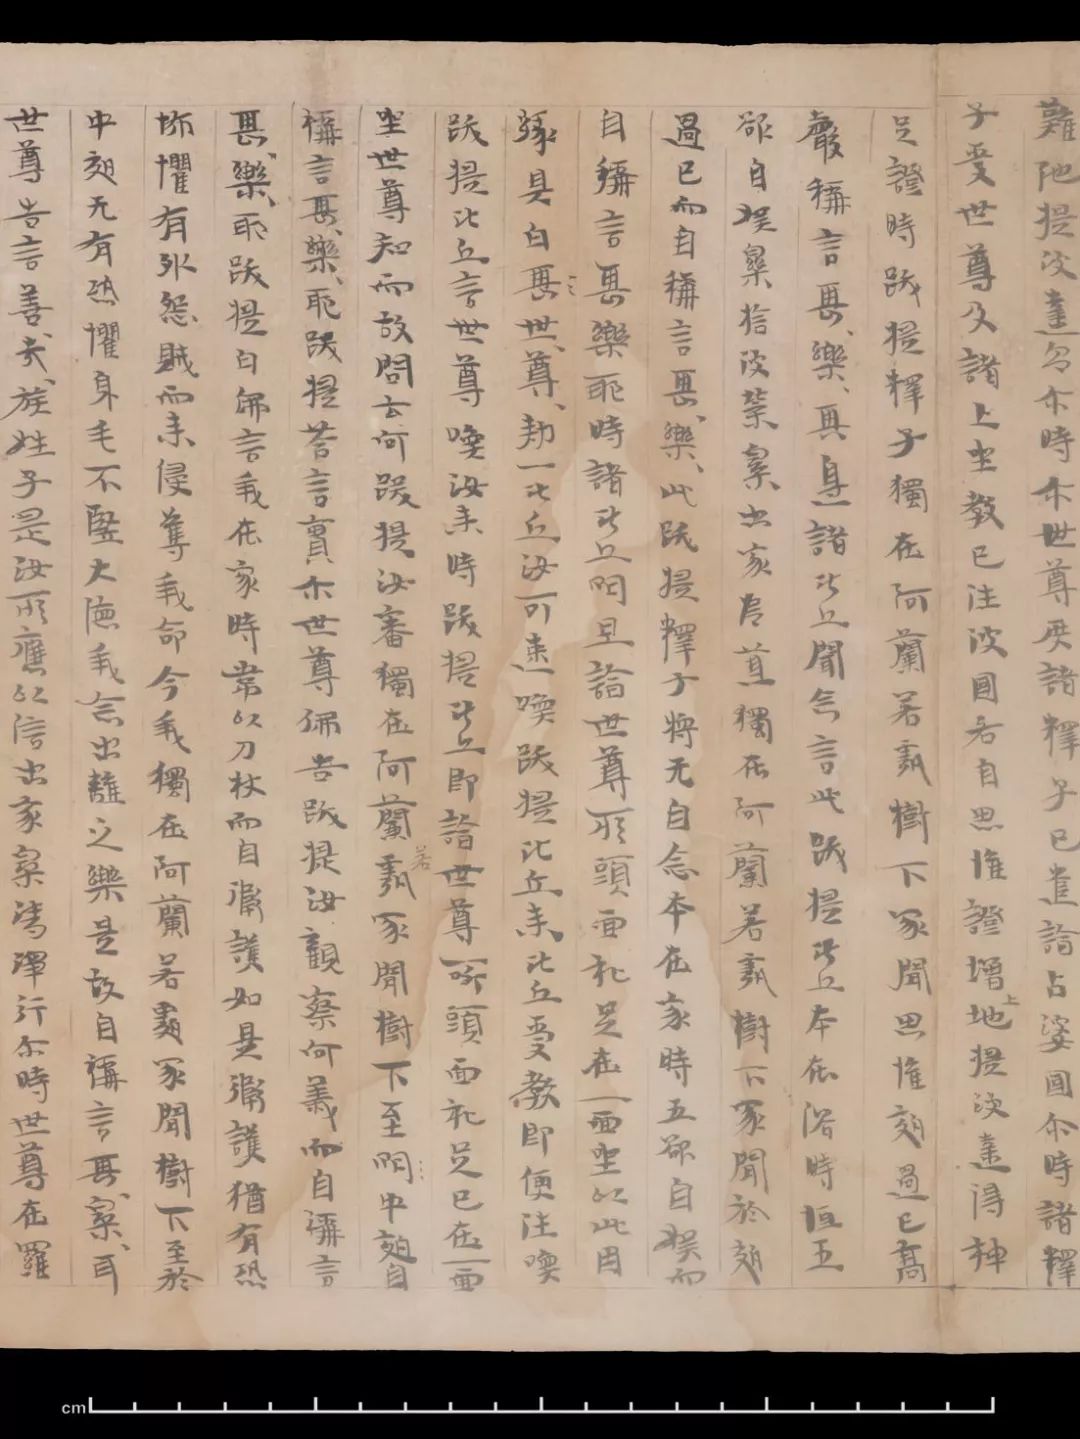 難陁提波達尒時尒世尊度諸釋子已遣詣占婆國尒時諸釋
子受世尊及諸上坐教已往彼國各自思惟證增上地提波達得神
足證時跋提釋子獨在阿蘭若處樹下冢間思惟夜過已高
聲稱言甚、樂、其邊諸比丘聞念言此跋提比丘本在俗時恒五
欲自娛樂捨彼榮樂出家為道獨在阿蘭若處樹下冢間於夜
過已而自稱言甚、樂、此跋提釋子將无自念本在家時五欲自娛而
自稱言甚樂耶時諸比丘明旦詣世尊所頭面礼足在一面坐以此因
緣具白世、尊、勑一比丘汝可速喚跋提比丘来、比丘受教即便往喚
跋提比丘言世尊喚汝来時跋提比丘即詣世尊所頭面礼足已在一面
坐世尊知而故問云何跋提汝審獨在阿蘭若處冢間樹下至明中夜自
稱言甚、樂、耶跋提荅言實尒世尊佛告跋提汝觀察何義而自稱言
甚、樂、耶跋提白佛言我在家時常以刀杖而自衛護如是衛護猶有恐
怖懼有外怨賊而来侵奪我命今我獨在阿蘭若處冢間樹下至於
中夜无有恐懼身毛不竪大德我念出離之樂是故自稱言甚、樂、耳
世尊告言善、哉、族姓子是汝所應以信出家樂清淨行尒時世尊在羅